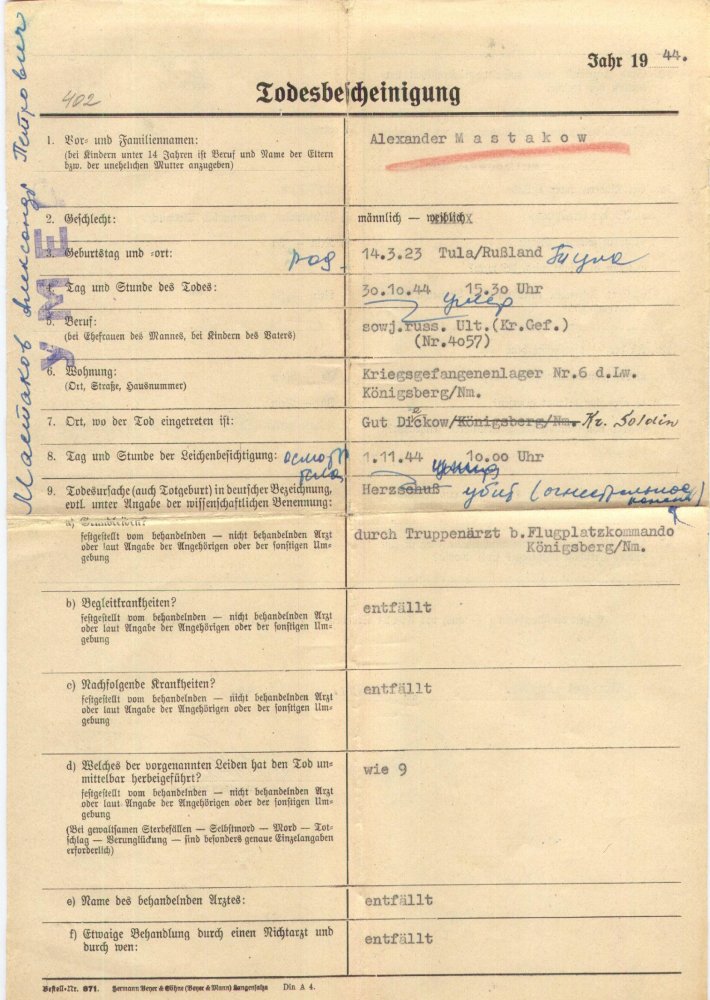 Jahr 19 44.
402
Todesbescheinigung
Мастаков Александр Петрович
УМЕР
1. Vor- und Familiennamen:
(bei Kindern unter 14 Jahren ist Beruf und Name der Eltern
bzw. der unehelichen Mutter anzugeben)
Alexander Mastakow
2. Geschlecht:
männlich — weiblich
3. Geburtstag und -ort:
род.
14.3.23 Tula/Rußland Тула
4. Tag und Stunde des Todes:
3o.1o.44 15.3o Uhr
умер
5. Beruf:
(bei Ehefrauen des Mannes, bei Kindern des Vaters)
sowj.russ. Ult.(Kr.Gef.)
(Nr.4o57)
6. Wohnung:
(Ort, Straße, Hausnummer)
Kriegsgefangenenlager Nr.6 d.Lw.
Königsberg/Nm.
7. Ort, wo der Tod eingetreten ist:
Gut Dickow/Königsberg/Nm. Kr. Soldin
8. Tag und Stunde der Leichenbesichtigung: осмотр
тела
1.11.44 1o.oo Uhr
9. Todesursache (auch Totgeburt) in deutscher Bezeichnung,
evtl. unter Angabe der wissenschaftlichen Benennung:
Herzschuß убит (огнестрельное
a) Grundleiden?
festgestellt vom behandelnden — nicht behandelnden Arzt
oder laut Angabe der Angehörigen oder der sonstigen Um-
gebung
durch Truppenärzt b.Flugplatzkommando
Königsberg/Nm.
b) Begleitkrankheiten?
festgestellt vom behandelnden — nicht behandelnden Arzt
oder laut Angabe der Angehörigen oder der sonstigen Um-
gebung
entfällt
c) Nachfolgende Krankheiten?
festgestellt vom behandelnden — nicht behandelnden Arzt
oder laut Angabe der Angehörigen oder der sonstigen Um-
gebung
entfällt
d) Welches der vorgenannten Leiden hat den Tod un-
mittelbar herbeigeführt?
festgestellt vom behandelnden — nicht behandelnden Arzt
oder laut Angabe der Angehörigen oder der sonstigen Um-
gebung
(Bei gewaltsamen Sterbefällen — Selbstmord — Mord — Tot-
schlag — Verunglückung — sind besonders genaue Einzelangaben
erforderlich)
wie 9
e) Name des behandelnden Arztes:
entfällt
f) Etwaige Behandlung durch einen Nichtarzt und
durch wen:
entfällt
Bestell-Nr. 871. Hermann Beyer & Söhne (Beyer & Mann) Langensalza Din A 4.